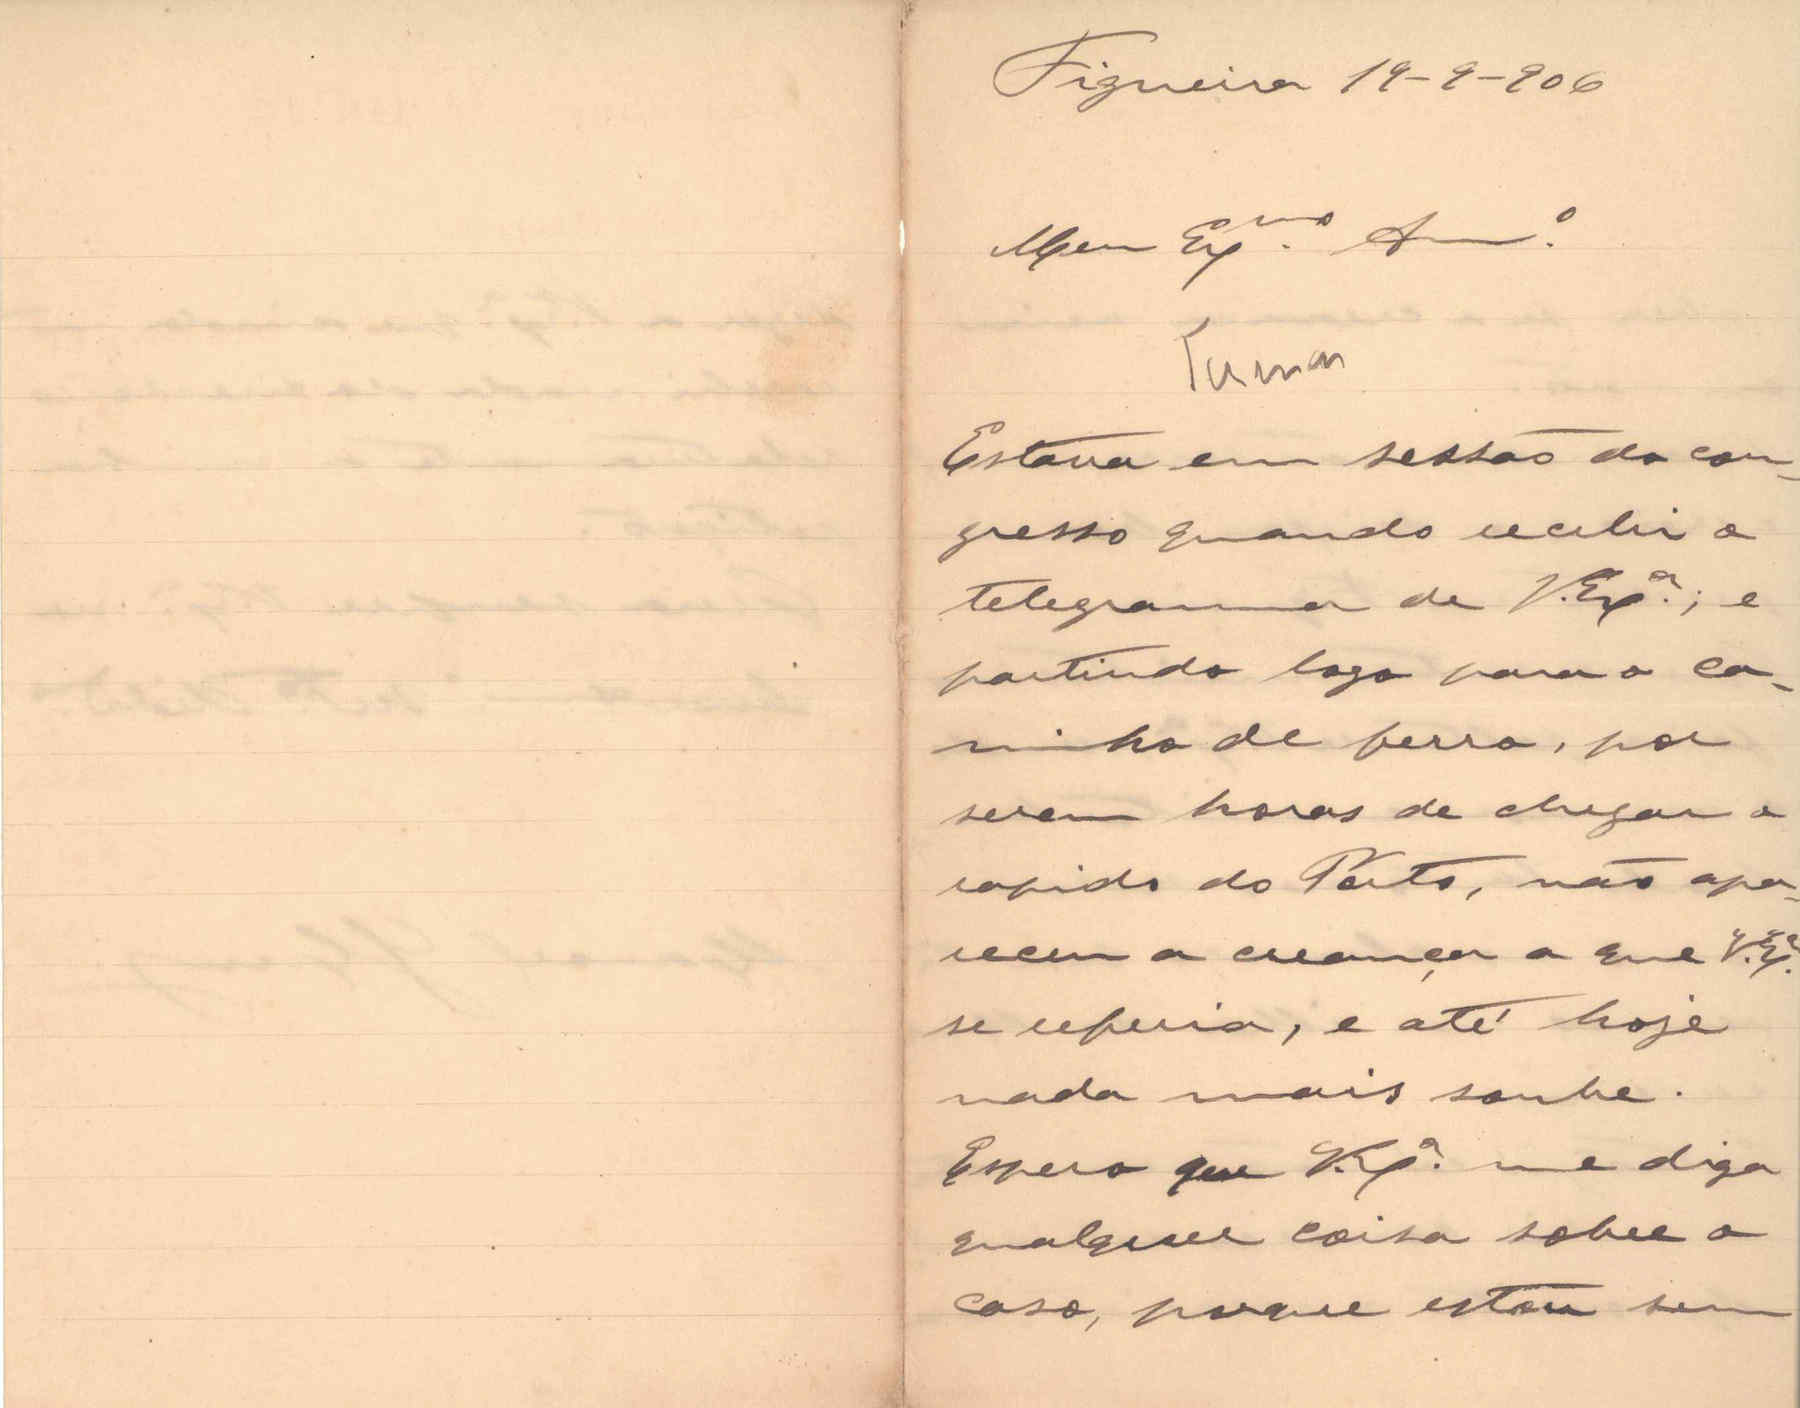 Figueira 19-9-906
Meu Ex.mo Am.o
Estava em sessão do con-
gresso quando recebi o
telegramma de V. Ex.a; e
partindo logo para o ca-
minho de ferro, por
serem horas de chegar o
rapido do Porto, não apa-
receu a creança a que V. Ex.a
se referia, e até hoje
nada mais soube.
Espero que V. Ex.a me diga
qualquer coisa sobre o
caso, porque estou sem